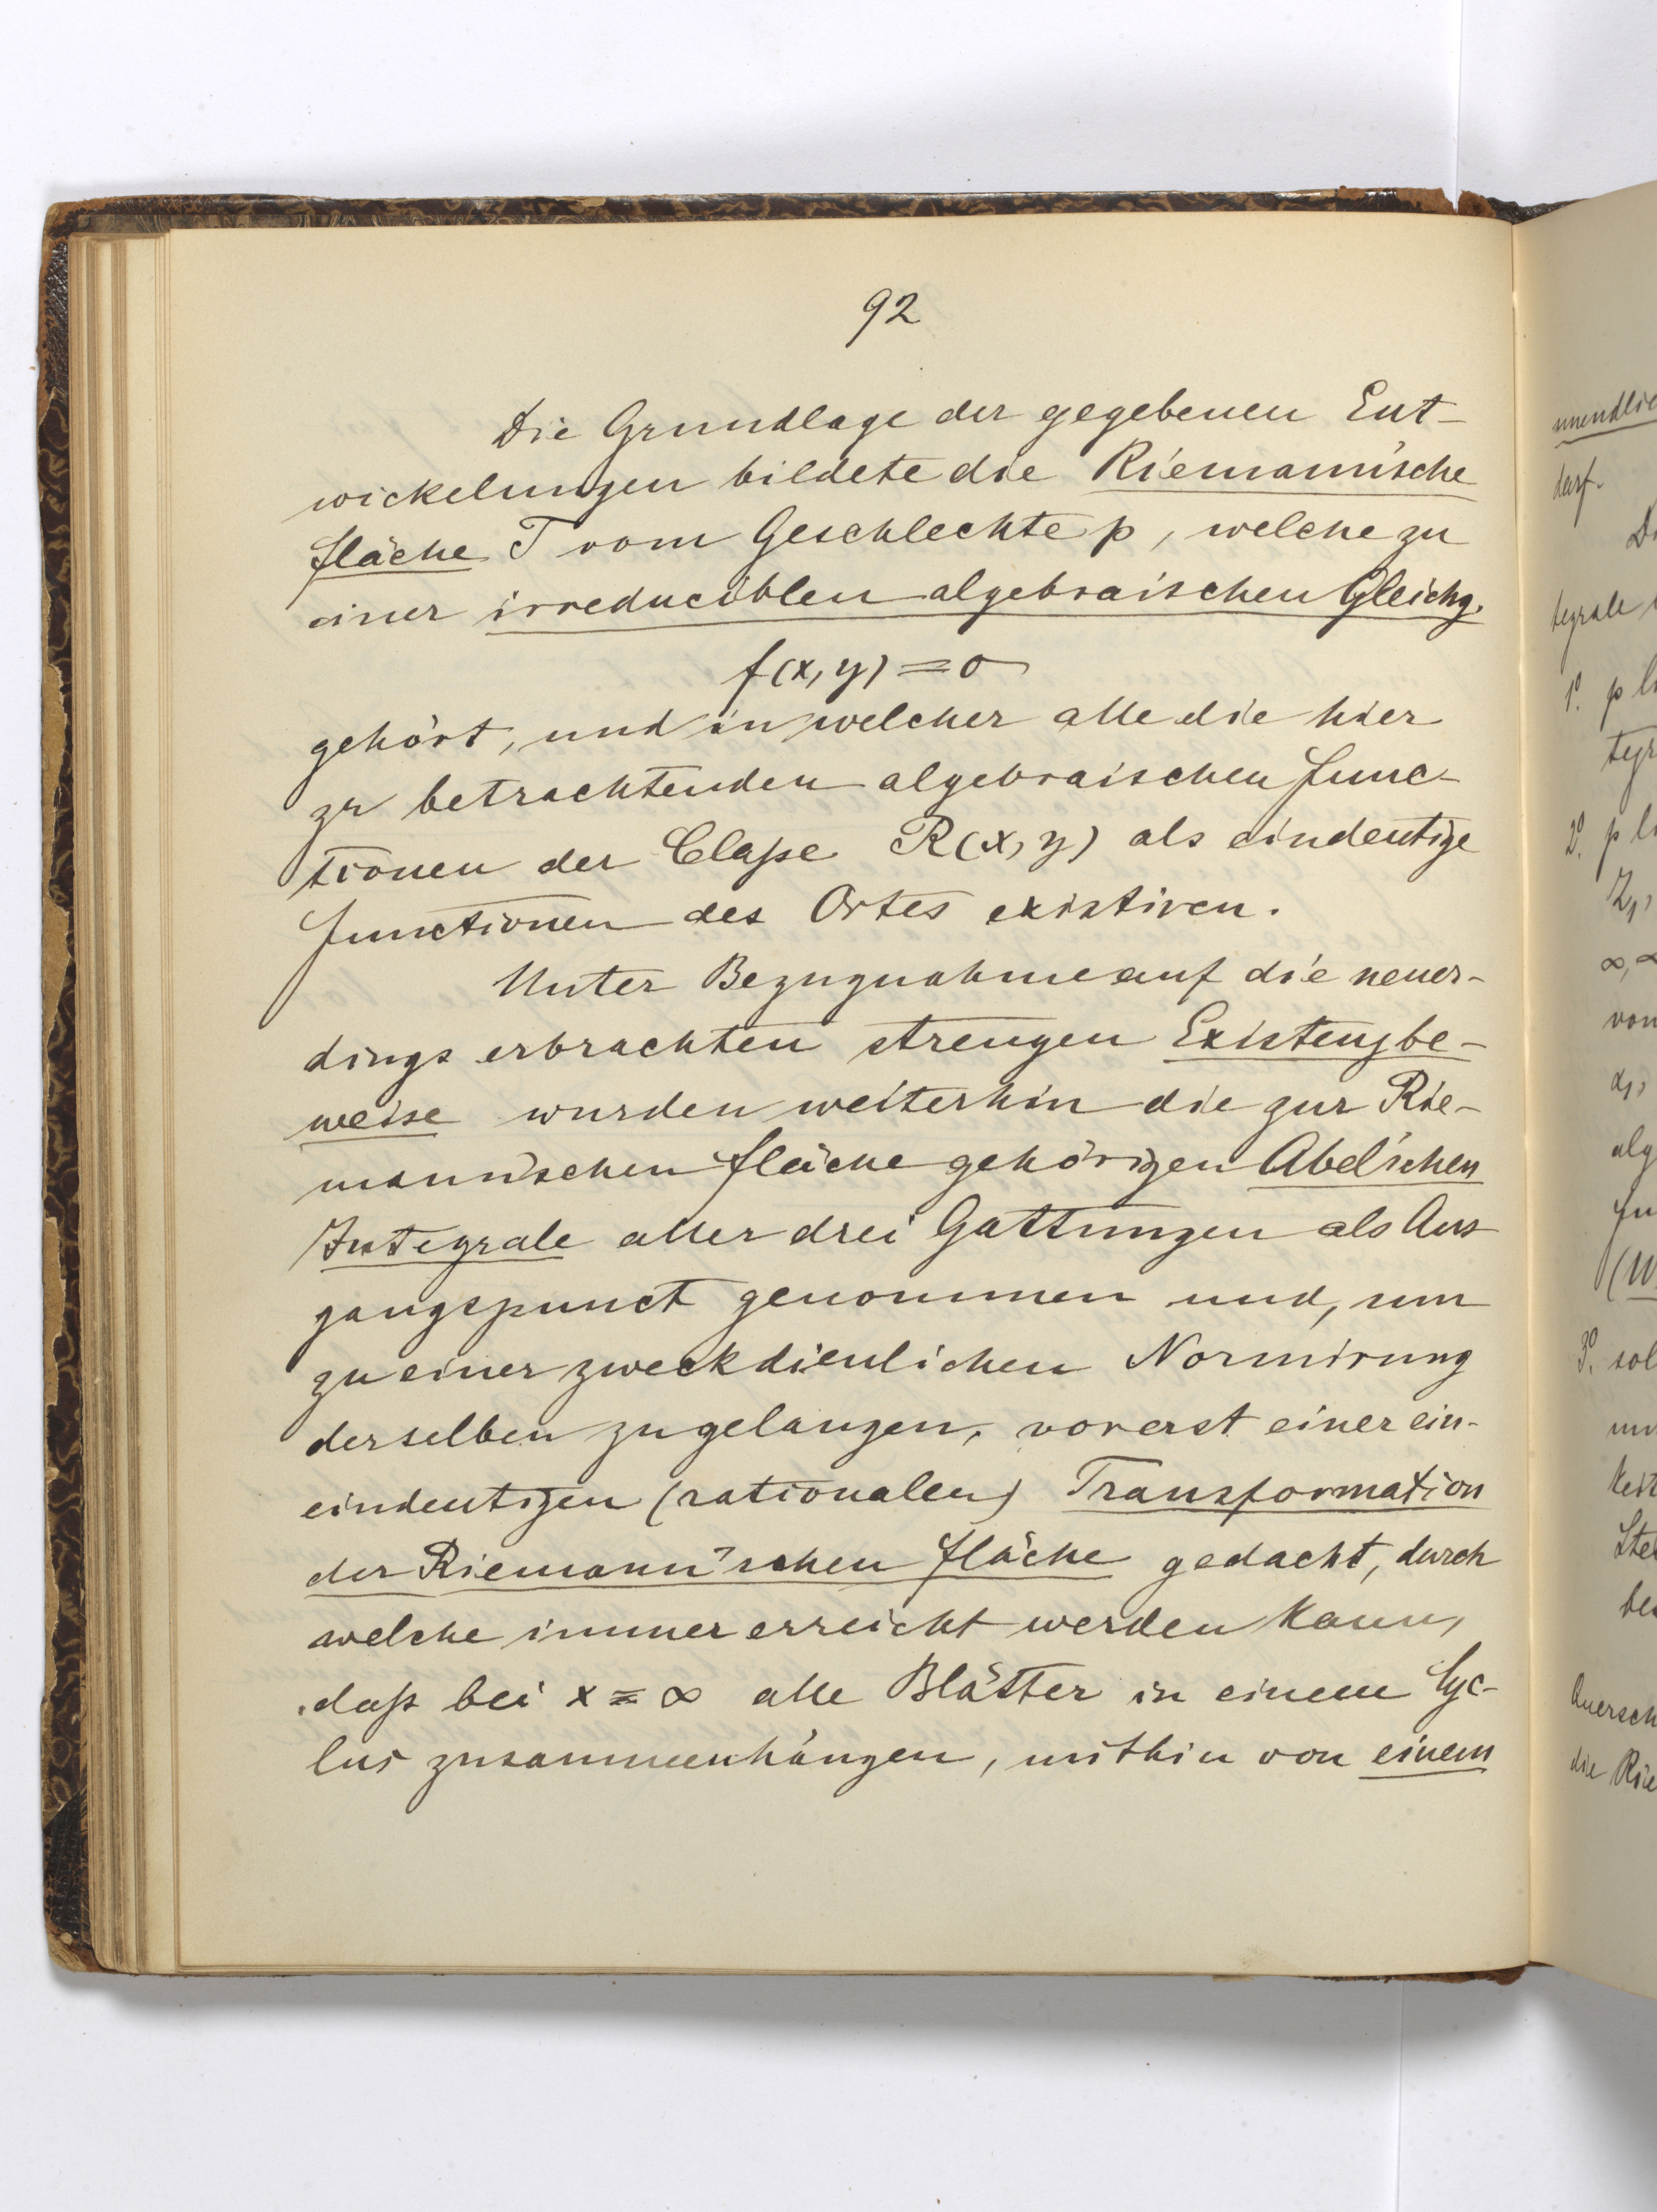 92
Die Grundlage der gegebenen Ent-
wickelungen bildete die Riemann'sche
Fläche T vom Geschlechte p, welche zu
einer irreduciblen algebraischen Gleichg.
f(x,y)=0
gehört, und in welcher alle die hier
zu betrachtenden algebraischen Func-
tionen der Classe R(x,y) als eindeutige
Functionen des Ortes existiren.
Unter Bezugnahme auf die neuer-
dings erbrachten strengen Existenzbe-
weise wurden weiterhin die zur Rie-
mann'schen Fläche gehörigen Abel'schen
Integrale aller drei Gattungen als Aus
gangspunct genommen und, um
zu einer zweckdienlichen Normirung
derselben zu gelangen, vorerst einer ein-
eindeutigen (rationalen) Transformation
der Riemann'schen Fläche gedacht, durch
welche immer erreicht werden kann,
dass bei x = ∞ alle Blätter in einem Cyc-
lus zusammenhängen, mithin von einem
unendlic
darf.
D
tegrale
1º. p li
teg
2º. p li
Z₁,
∞, ∞
von
alg
Fu
(W
3º. sol
Ste
be
Quersch
die Rie